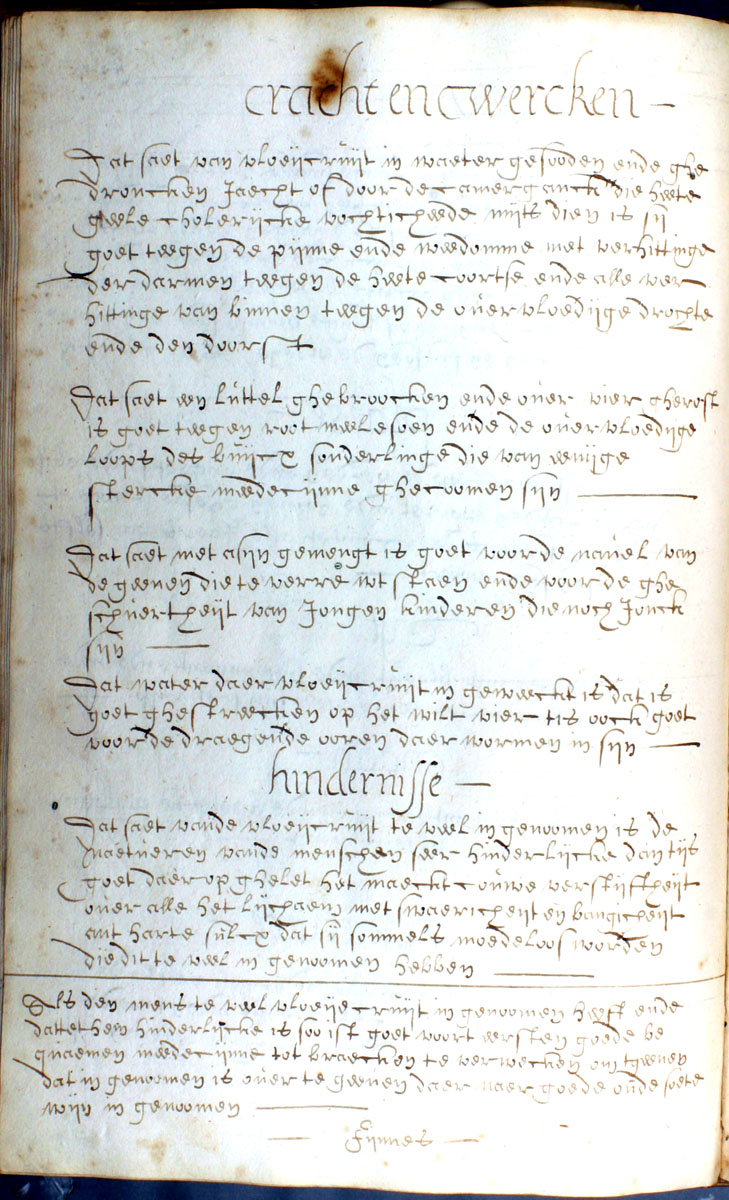 cracht en wercken
Dat saet van vloeijcruijt in waeter gesooden ende ghe
droncken Jaecht of door de camerganck die heete
geele cholerijcke vochticheede mijts dien is sij
goet teegen de pijnne ende weedomme met verhittinge
der darmen teegen de heete coortse ende alle ver
hittinge van binnen teegen de overvloedijge drochte
ende den doorst
Dat saet een luttel ghebroocken ende over vier gherost
is goet teegen root meelesoen ende de overvloedijge
loops des buijcx sonderlinge die van eenijge
stercke meedecijnne ghecoomen sijn
Dat saet met asijn gemengt is goet voor de navel van
de geenen die te verre wt staen ende voor de ghe
schuertheijt van Jongen kinderen die noch Jonck
sijn
Dat water daer vloeijcruijt in geweeckt is dat is
goet ghestreecken op het wilt vier tis oock goet
voor de draegende ooren daer wormen in sijn
hindernisse
Dat saet vande vloeijcruijt te veel in genoomen is de
naetueren vande menschen seer hinderlijcke dan tijs
goet daer op ghelet het maeckt couwe verstijftheijt
over alle het lijchaem met swaericheijt en bangicheijt
ant harte sulcx dat sij sommels moedeloos worden
die dit te veel in genoomen hebben
Als den mens te veel vloeijecruijt in genoomen heeft ende
dattet hem hinderlijcke is soo ist goet voort eersten goede be
quaemen meedecijnne tot braecken te verwecken om tgeenen
dat in genoomen is over te geeven daer naer goede oude soete
wijn in genoomen
Fijnnes